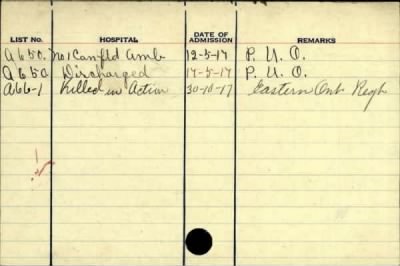 LIST No. HOSPITAL DATE OF ADMISSION REMARKS
A650. No 1 Can fld Amb 12-5-17 P. U. O.
A650 Discharged 17-5-17 P. U. O.
A66-1 Killed in Action 30-10-17 Eastern Ont Regt